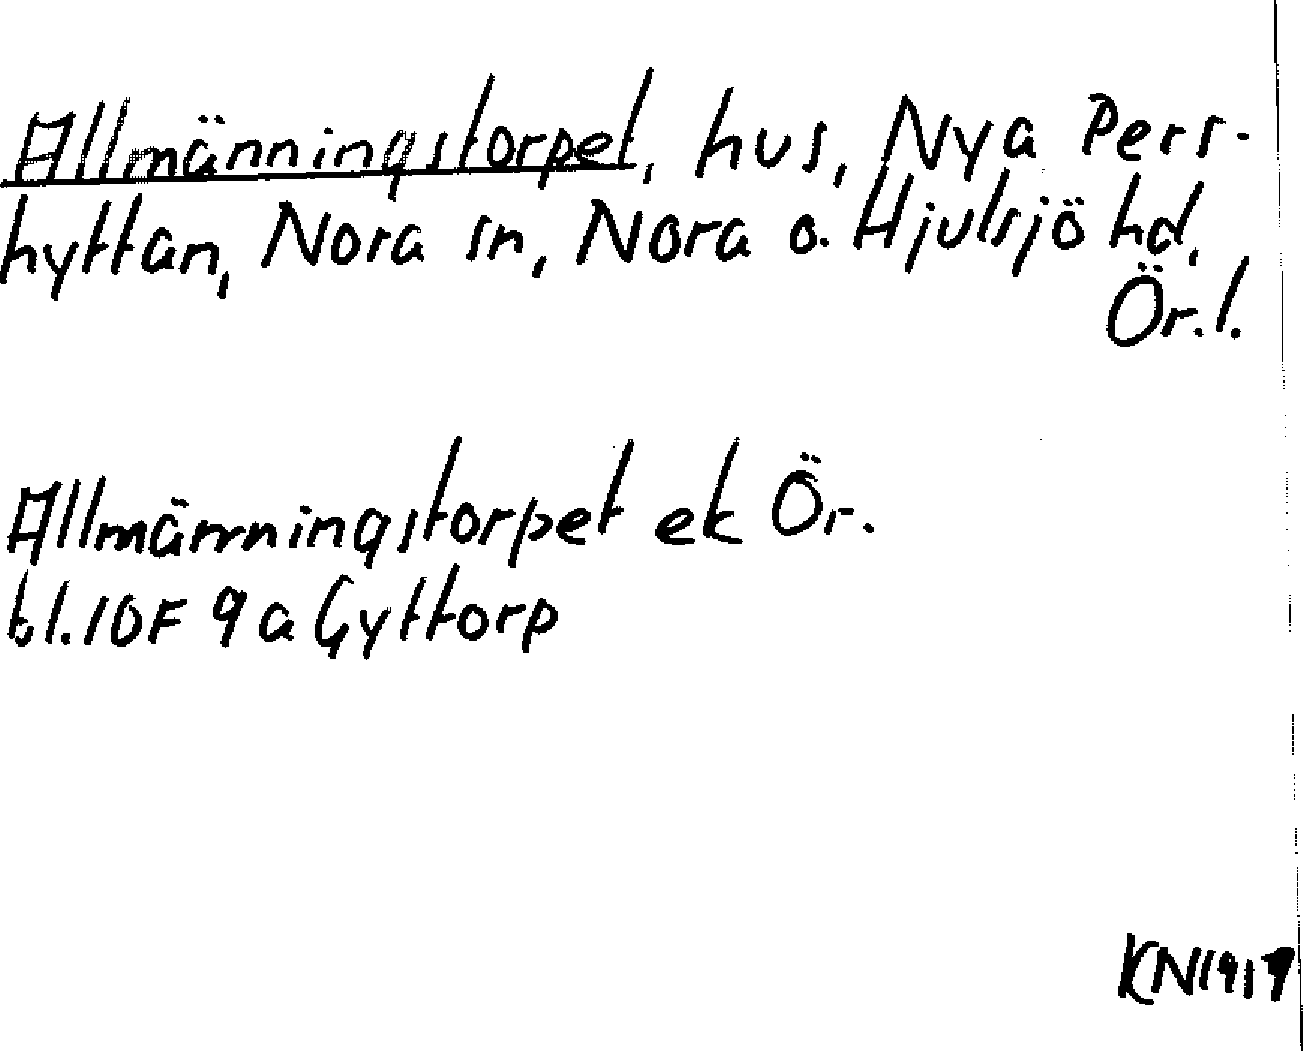 Allmänningstorpet, hus, Nya Pers-
hyttan, Nora sn, Nora o. Hjulsjö hd,
Ör. l.
Allmänningstorpet ek Ör.
bl. 10F 9a Gyttorp